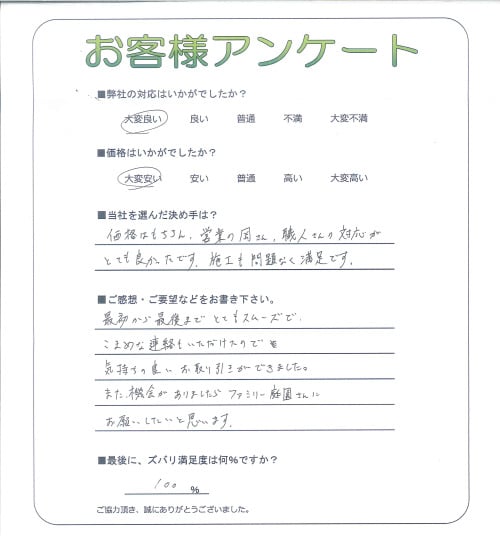 お客様アンケート
■弊社の対応はいかがでしたか？
大変良い 良い 普通 不満 大変不満
■価格はいかがでしたか？
大変安い 安い 普通 高い 大変高い
■当社を選んだ決め手は？
価格はもちろん、営業の岡さん、職人さんの対応が
とても良かったです。施工も問題なく満足です。
■ご感想・ご要望などをお書き下さい。
最初から最後までとてもスムーズで、
こまめな連絡もいただけたのでも
気持ちの良いお取り引きができました。
また、機会がありましたらファミリー庭園さんに
お願いしたいと思います。
■最後に、ズバリ満足度は何％ですか？
100 ％
ご協力頂き、誠にありがとうございました。